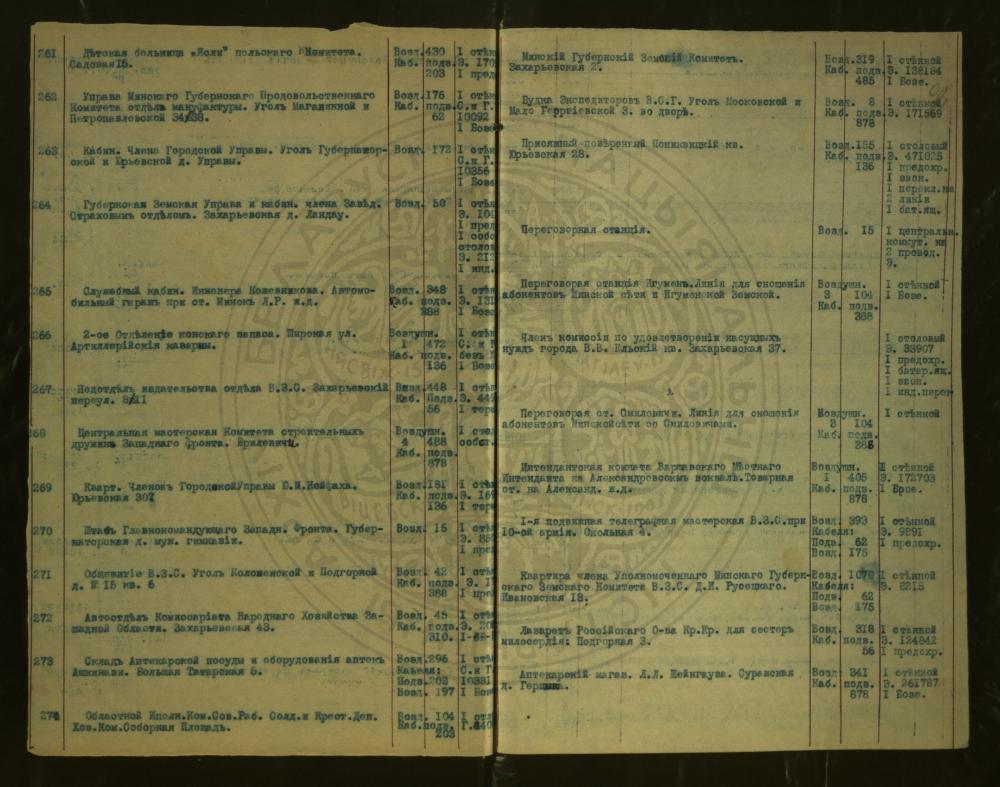 261 Дѣтская больница "Ясли" польскаго Комитета. Возд.430 I стѣн
Садовая 15. Каб. подв. Э. 170
203 I пред
262 Управа Минскаго Губернскаго Продовольственнаго Возд.176 I стѣн
Комитета отдѣлъ мануфактуры. Уголъ Магазинной и Каб. подв. С.и Г.
Петропавловской 34/38. 62 10092
I Бозе
263 Кабин. Члена Городской Управы. Уголъ Губернатор- Возд. 172 I стѣн
ской и Юрьевской д. Управы. С.и Г.
10356
I Бозе
264 Губернская Земская Управа и кабин. члена Завѣд. Возд. 50 I стѣн
Страховымъ отдѣломъ. Захарьевская д. Ландау. Э. 104
I пред
I собс
столов
Э. 212
I инд.
265 Служебный кабин. Инженера Кожевникова. Автомо- Возд. 348 I стѣн
бильный гаражъ при ст. Минскъ Л.Р. ж.д. Каб. подв. Э. 131
388 I Бозе
266 2-ое Отдѣленіе конскаго запаса. Широкая ул. Воздушн. I стѣн
Артиллерійскія казармы. I 472 С. и Г
Каб. подв. безъ
136 I Бозе
267 Подотдѣлъ издательства отдѣла В.З.С. Захарьевскій Возд.448 I стѣн
переул. 8/11 Каб. Подв. Э. 449
56 I тер
268 Центральная мастерская Комитета строительныхъ Воздушн. I стѣн
дружинъ Западнаго фронта. 4 488 собст.
Каб. подв.
878
269 Кварт. Членовъ Городской Управы Возд.181 I стѣн
Юрьевская 30 Каб. подв. Э. 169
136 I тер
270 Штабъ Главнокомандующаго Западн. Фронта. Губер- Возд. 15 I стѣн
наторская д. муж. гимназіи. Э. 85
I пре
271 Общежитіе В.З.С. Уголъ Коломенской и Подгорной Возд. 42 I стѣн
д. № 15 кв. 6 Каб. подв. Э. 1
388 I пре
272 Автоотдѣлъ Комиссаріата Народнаго Хозяйства За- Возд. 45 I стѣн
падной Области. Захарьевская 43. Каб. подв. Э. 20
310.
273 Складъ Аптекарской посуды и оборудованія аптекъ Возд.296 I стѣн
Ашкинази. Большая Татарская 5. Кабеля: С.и Г.
Подв.203 10331
Возд. 197 I Бозе
274 Областной Исполн.Ком.Сов.Раб. Солд.и Крест.Деп. Возд. 104 I стѣн
Хоз.Ком.Соборная Площадь. Каб.подв. Г.440
203
Минскій Губернскій Земскій Комитетъ. Возд.319 I стѣнной
Захарьевская 2. Каб. подв. Э. 138184
485 I Бозе.
Будка Экспедиторовъ В.С.Г. Уголъ Московской и Возд. 8 I стѣнной
Мало Георгіевской 3. во дворѣ. Каб. подв. Э. 171569
878
Присяжный повѣренный Понизвицкій кв. Возд.155 I столовый
Юрьевская 28. Каб. подв. Э. 471025
136 I предохр.
I звон.
I перекл.на
2 линіи
I бат.ящ.
Переговорная станція. Возд. 15 I центральн.
комут. на
2 провод.
Э.
Переговорная станція Игуменъ.Линія для сношенія Воздушн. I стѣнной
абонентовъ Минской сѣти и Игуменской Земской. 3 104 I Бозе.
Каб. подв.
388
Членъ комиссіи по удовлетворенію насущныхъ I столовый
нуждъ города В.В. Ельскій кв. Захарьевская 37. Э. 33907
I предохр.
I батар.ящ.
I звон.
I инд.перек
Переговорая ст. Смиловичи. Линія для сношенія Воздушн. I стѣнной
абонентовъ Минской сѣти со Смиловичами. 3 104
Каб. подв.
388
Интендантская комната Варшавскаго Мѣстнаго Воздушн. I стѣнной
Интенданта на Александровскомъ вокзалѣ.Товарная I 405 Э. 172703
ст. на Александ. ж.д. Каб. подв. I Брое.
878
1-я подвижная телеграфная мастерская В.З.С.при Возд. 393 I стѣнной
10-ой арміи. Скольная 4. Кабеля: Э. 9891
Подв. 62 I предохр.
Возд. 175
Квартира члена Уполномоченнаго Минскаго Губерн- Возд. 1070 I стѣнной
скаго Земскаго Комитета В.З.С. Д.И. Русецкаго. Кабеля: Э. 8215
Ивановская 18. Подв. 62
Возд. 175
Лазаретъ Россійскаго О-ва Кр.Кр. для сестеръ Возд. 318 I стѣнной
милосердія: Подгорная 3. Каб. подв. Э. 124842
56 I предохр.
Аптекарскій магаз. Л.Л. Шейнгауза. Суражская Возд. 341 I стѣнной
д. Герцыка. Каб. подв. Э. 261787
878 I Бозе.